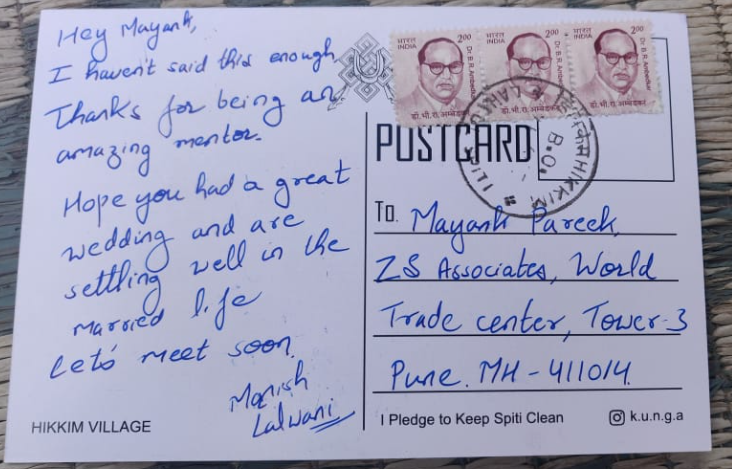 Hey Mayank,
I haven't said this enough
Thanks for being an
amazing mentor.
Hope you had a great
wedding and are
settling well in the
married life
Let's meet soon.
Manish
Lalwani
HIKKIM VILLAGE
भारत 2.00
INDIA
Dr B.R.Ambedkar
डॉ.भी.रा.अम्बेडकर
भारत 2.00
INDIA
Dr B.R.Ambedkar
डॉ.भी.रा.अम्बेडकर
भारत 2.00
INDIA
Dr B.R.Ambedkar
डॉ.भी.रा.अम्बेडकर
HIKKIM
B.O.
POSTCARD
To. Mayank Pareek,
ZS Associates, World
Trade center, Tower-3
Pune. MH - 411014.
I Pledge to Keep Spiti Clean
k.u.n.g.a